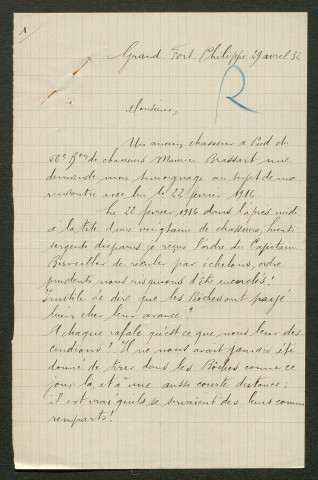 1
Grand-Fort-Philippe 29 avril 32
R
Monsieur,
Un ancien chasseur à Pied du
56e Bon de chasseurs Maurice Brassart me
demande mon témoignage au sujet de ma
rencontre avec lui le 22 février 1916.
Le 22 février 1916 dans l'après midi
à la tête d'une vingtaine de chasseurs,
sergents disparus je reçus l'ordre du Capitaine
de reculer par échelons, ordre
prudent, nous risquions d'être encerclés!
Inutile de dire que les Boches ont payé
bien cher leur avance!
A chaque rafale qu'est ce que nous leur des-
cendions? Il ne nous avait jamais été
donné de tirer dans les Boches comme ce
jour là, et à une aussi courte distance:
il est vrai qu'ils se servaient des leurs comme
remparts!